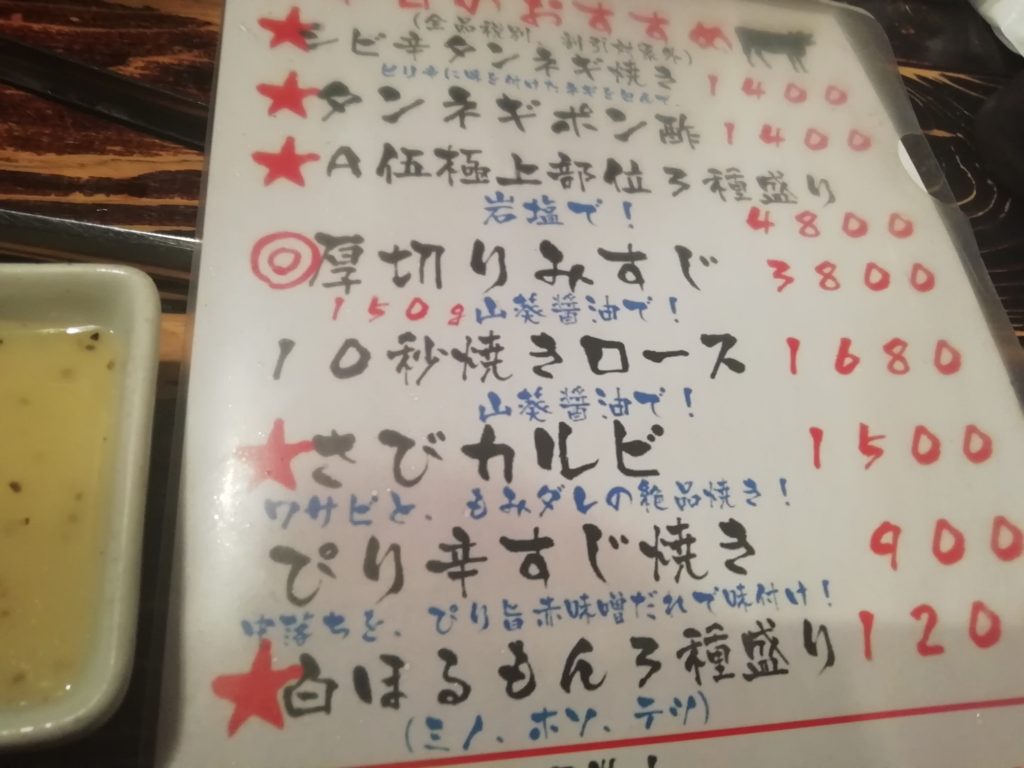 本日のおすすめ
(全品税別、割引対象外)
シビ辛タンネギ焼き 1400
ピリ辛に味を付けたネギを包んで
タンネギポン酢 1400
A伍極上部位3種盛り
岩塩で! 4800
厚切りみすじ 3800
150g山葵醤油で!
10秒焼きロース 1680
山葵醤油で!
さびカルビ 1500
ワサビと、もみダレの絶品焼き!
ぴり辛すじ焼き 900
中落ちを、ぴり旨赤味噌だれで味付け!
白ほるもん3種盛り 120
(ミノ、ホソ、テツ)